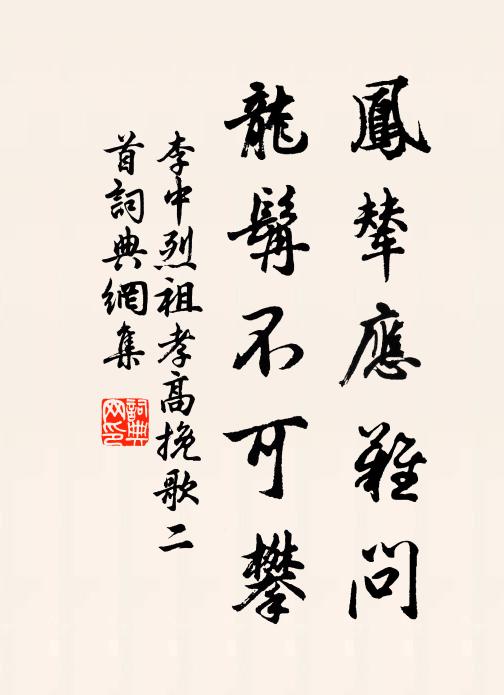 鳳輦應難問
龍髯不可攀
李中烈祖孝高挽歌二
首詞典網集
詞典
网印